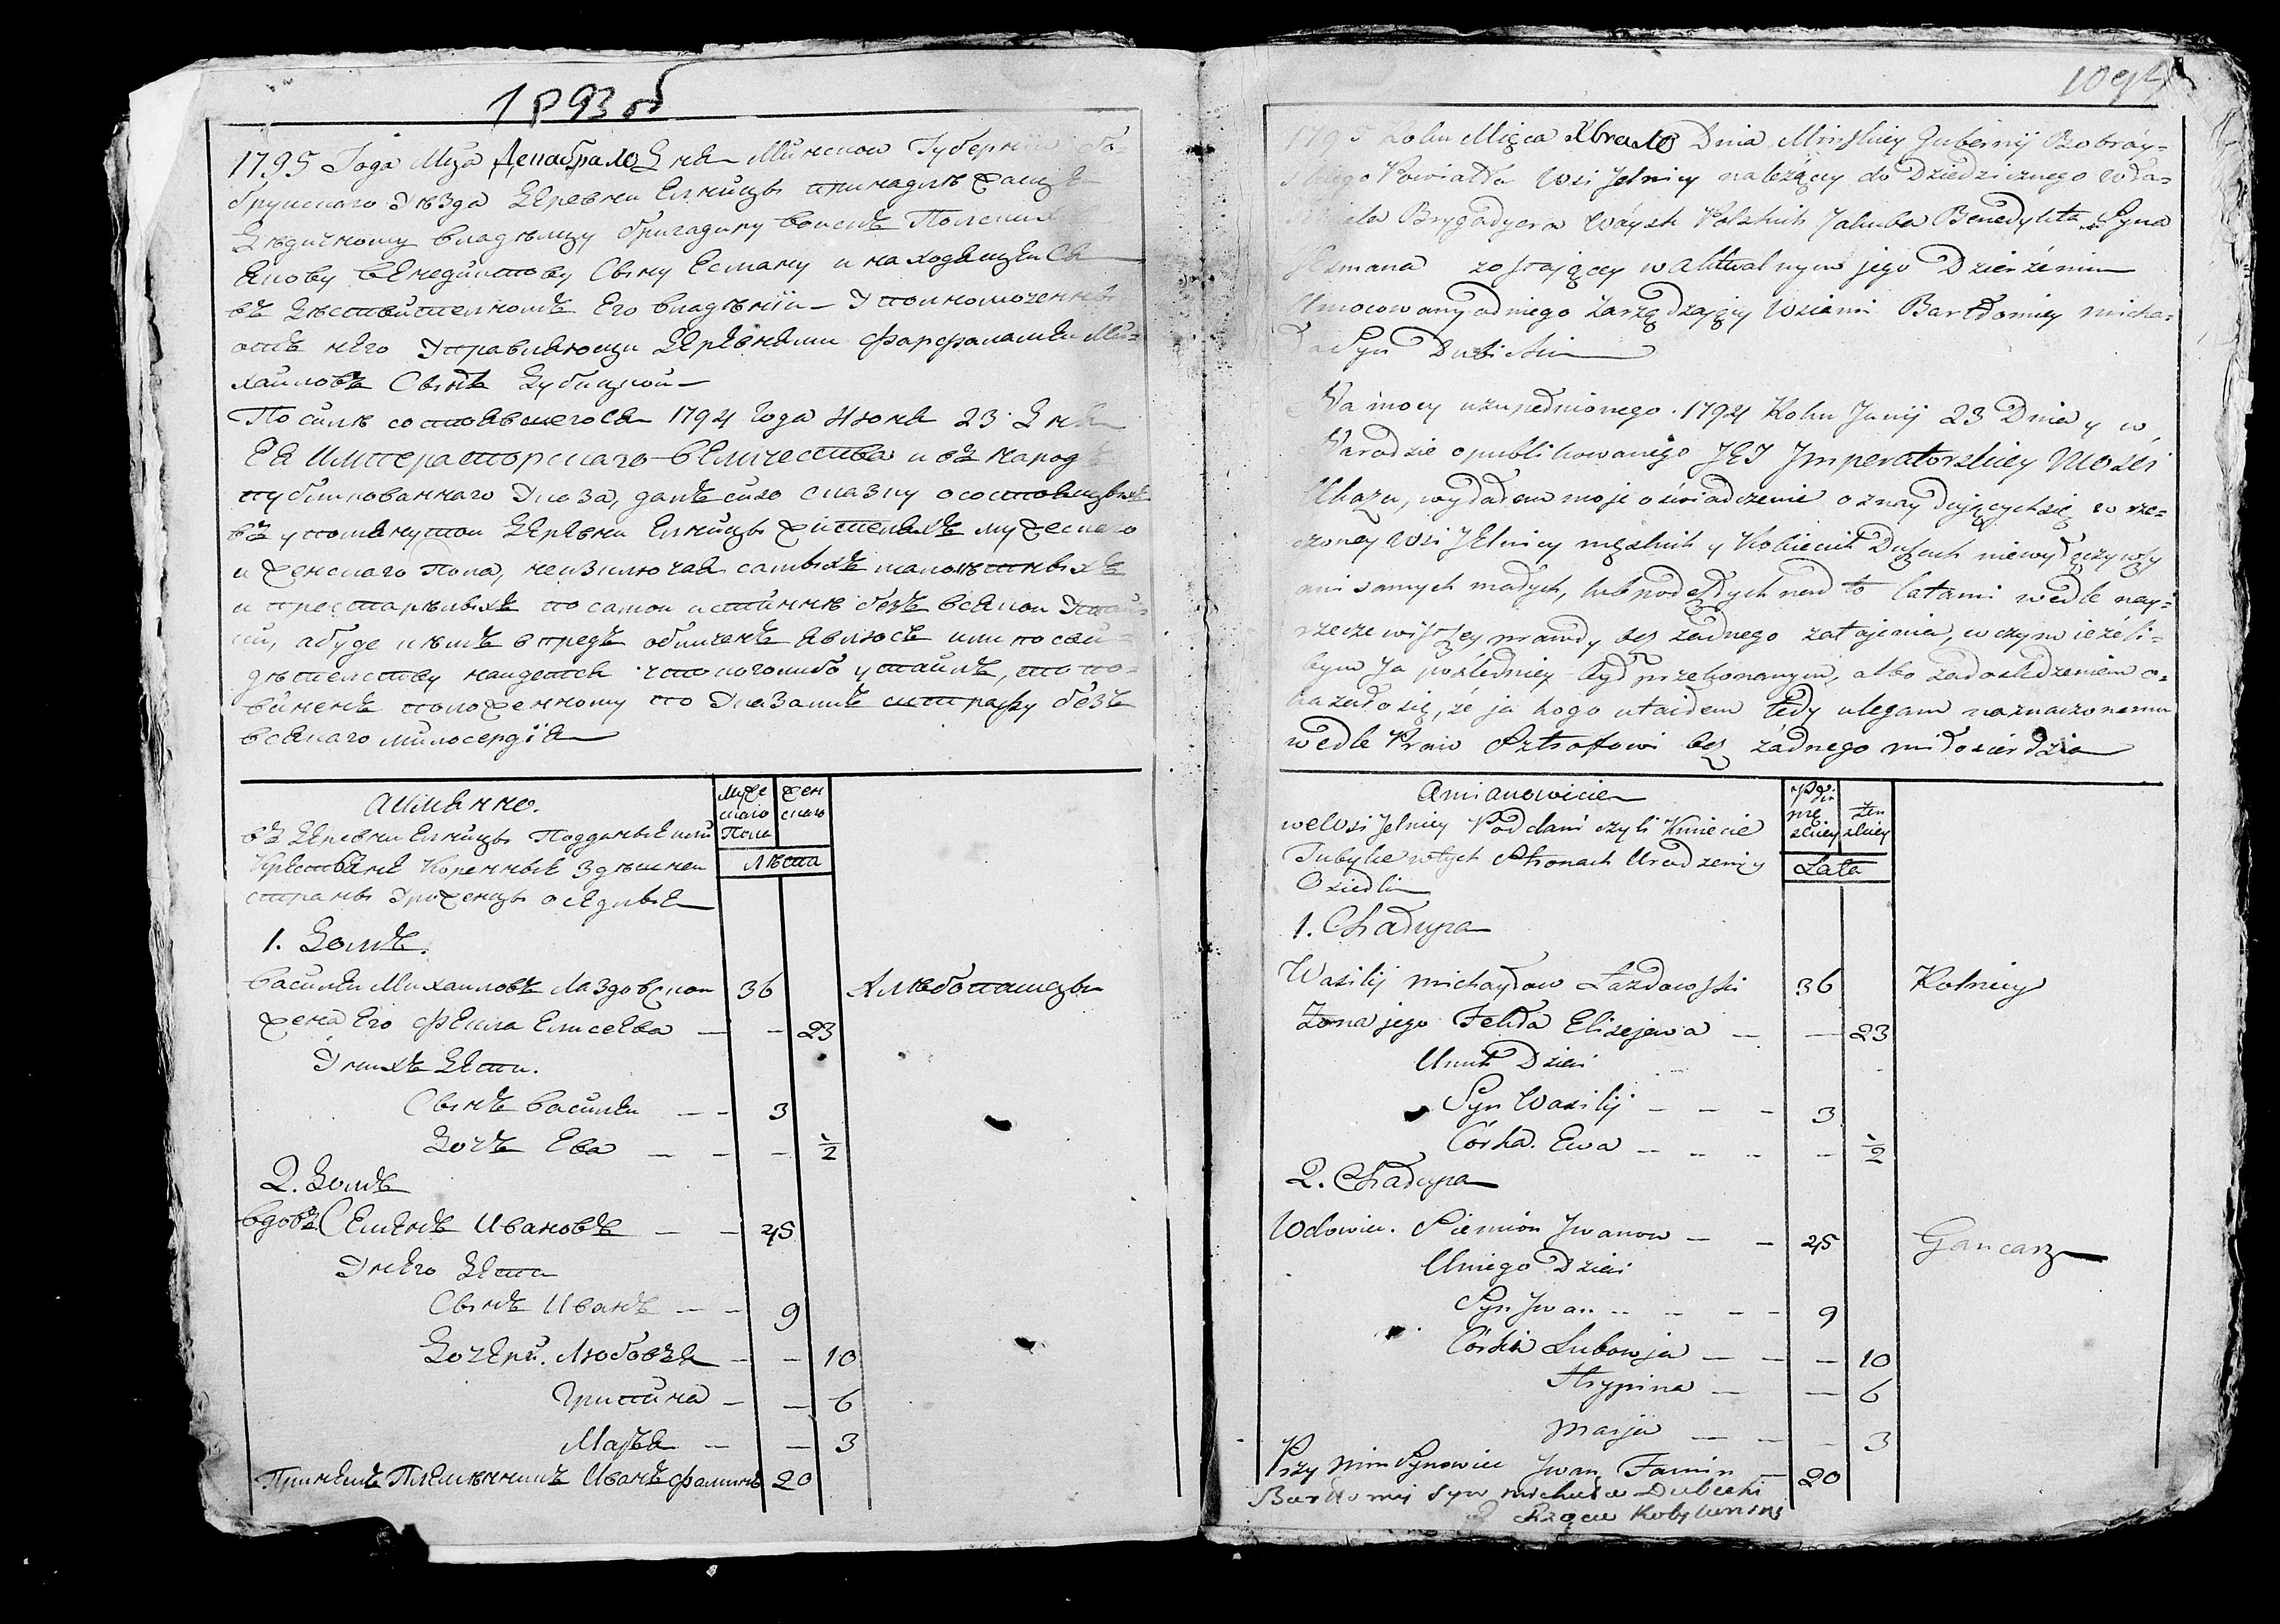 1795 Года Мца Декабра 10 Дня Минской Губернии Бо-
бруйскаго Уѣзда Деревни Елницы принадлѣжащей
Дѣдичному владѣлцу бригадиру воискъ Полских
Якову Венедиктову Сыну Есману и находящейся
въ дѣйствителномъ Его владѣнїи Уполномоченны
отъ него Управляющи Деревнями Фарфаламей Ми-
хаиловъ Сынъ Дубицкой
По силѣ состоявшегося 1794 Года Июня 23 Дня
ЕЯ Императорскаго Величества и въ народѣ
публикованнаго Указа, далъ сию сказку о состоящихъ
въ упомянутои Деревни Елницы жителяхъ мужескаго
и женскаго Пола, неизключая самыхъ малолѣтныхъ
и престарѣлыхъ по самои истиннѣ безъ всякои Утаи-
ки, а буде кѣмъ впредь обличенъ явлюсь или по сви-
дѣтелству наидется что коголибо утаилъ, то по-
виненъ положенному по Указамъ штрафу безъ
всякаго милосердїя
Аимянно.
въ Деревни Елницы Подданные или
Крестьяне Коренные Здѣшней
страны Уроженцы оседлые
Муже
скаго
Пола
жен
скаго
Лѣта
1. Домъ.
Василеи Михаиловъ Лаздовскои 36 Хлѣбопашецы
жена Его Фекла Елисеева — — 23
У нихъ Дети.
Сынъ Василеи — — 3
Дочъ Ева — — — ½
2. Домъ
вдовъ Семенъ Ивановъ — — 45
У него Дети
Сынъ Иванъ — — 9
Дочери. Любовья — — 10
Грипина — — 6
Марья — — 3
При немъ Племянникъ Иванъ Фаминъ 20
1795 Roku Mięca Xbra 10 Dnia Mińskiey Gubernij Bobróy-
skiego Powiatu Wsi Jelnicy należący do Dziedzicznego właś-
ciciela Brygadyera Woysk Polskich Jakuba Benedykta Syna
Jezmana zostaiącey w aktualnym jego Dzierżeniu
Umocowany od niego Zarządzaiący Wsiami Bartłomiey micha-
ła Syn Dubicki
Na mocy uzupełnionego 1794 Roku Junij 23 Dnia y w
Narodzie opublikowanego JEJ Jmperatorskiey Mości
Ukazu, wydałem moje oświadczenie o znayduiących się w rze-
czoney Wsi Jelnicy męskich y Kobiecich Duszach niewyłączywszy
ani samych małych, lub podeszłych nad to latami wedle nay-
rzeczewistszey prawdy bez żadnego zatajenia, w czym ieżeli-
bym Ja poźledniey był przekonanym, albo za dośledzeniem o-
kazało się, że ja kogo utaiłem tedy ulegam naznaczonemu
wedle Praw Sztrafowi bez żadnego miłosierdzia
Amianowicie
we Wsi Jelnicy Poddani czyli Kmiecie
Tubylce w tych Stronach Urodzeni y
Osiedli
Płci
mę
skiey
żen
skiey
Lata
1. Chałupa
Wasilij michayłow Łazdowski 36 Rolnicy
Żona jego Tekla Elisejewa — — 23
U nich Dzieci
Syn Wasilij — — — 3
Córka. Ewa — — — — ½
2. Chałupa
Wdowiec. Siemion Jwanow — — 45 Gancarz
U niego Dzieci
Syn Jwan — — — 9
Córki Lubowja — — — 10
Hrypina — — 6
Marja — — — 3
Przy Nim Synowiec Jwan Famin — 20
Bartłomiej Syn michała Dubicki